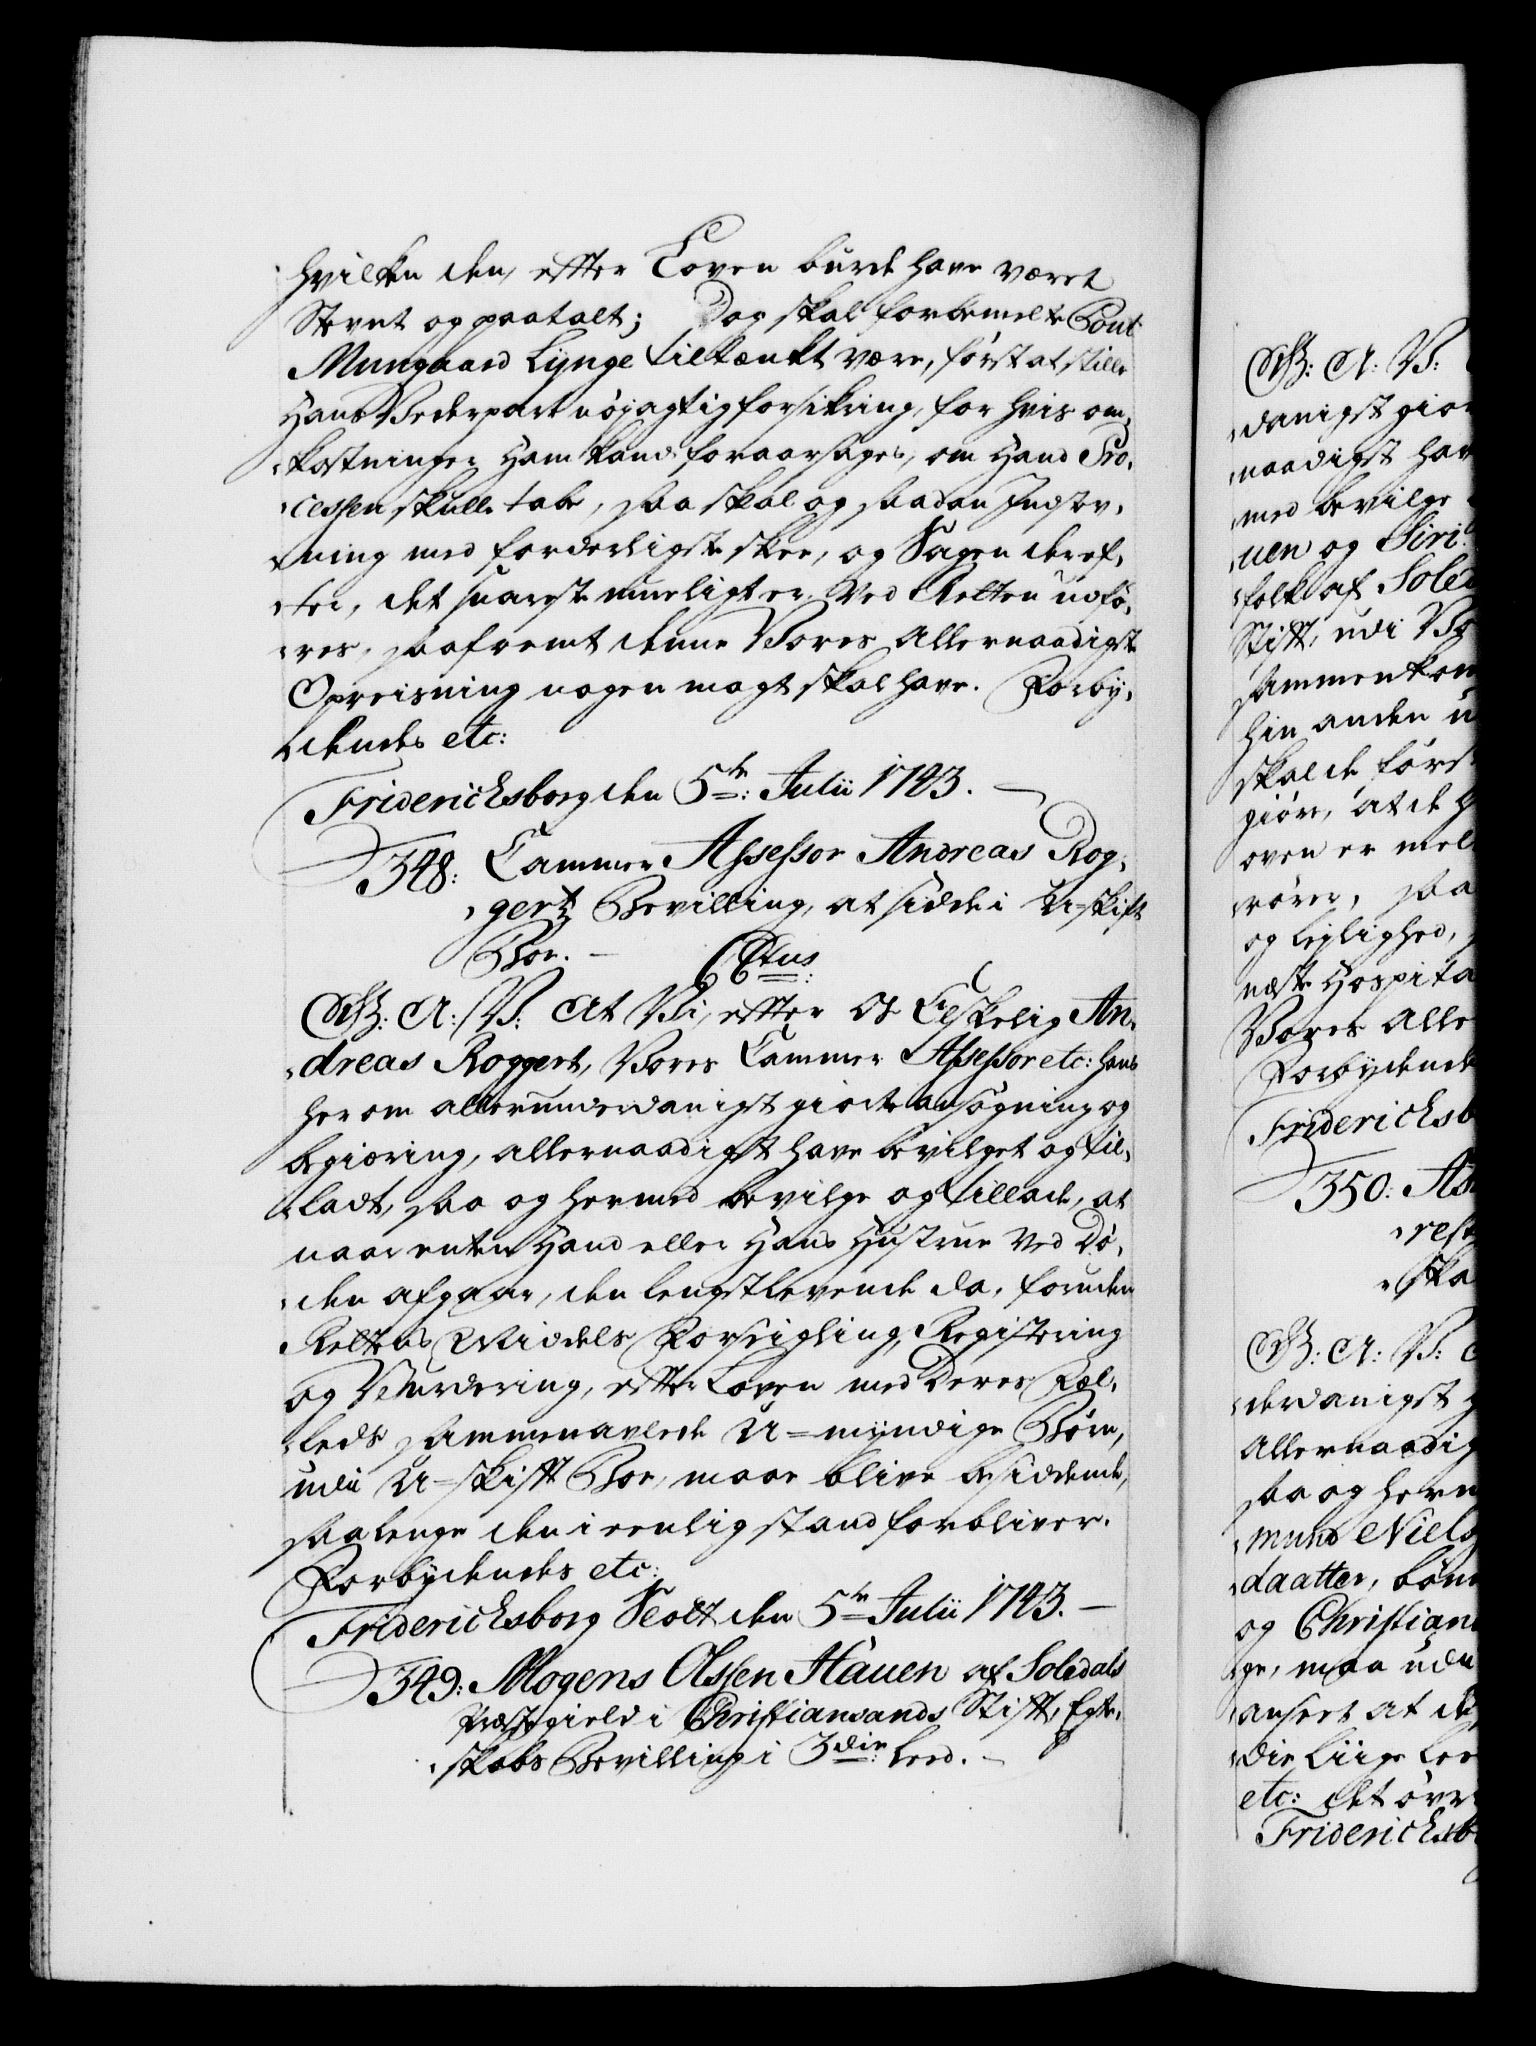 hvilken den, efter Loven burde have været
Stevnt og paatalt; Dog skal forbemelte Pont
Mungaard Lynge tiltænkt være, først at stille
Hans Vederpart nøyagtig forsikring, for hvis om,
kostninger Ham kand foraarsages, om Hand Pro,
cessen skulle tabe, saa skal og saadan Indstev,
ning med forderligste skee, og Sagen deref,
ter, det snareste mueligt er, ved Retten udfø,
res, saafremt denne Vores allernaadigste
Opreisning nogen magt skal have. Forby,
dendes etc:
Friderichsborg den 5te: Julii 1743.
348: Cammer Assessor Andreas Rog,
gert Bevilling, at sidde i U-skift
Boe. Ctus
G: A: V: At Vi, efter Os Elskelig An,
dreas Roggert, Vores Cammer Assessor etc: hans
herom allerunderdanigst giorte ansøgning og
begiæring, allernaadigst have bevilget og til,
ladt, saa og hermed bevilge og tillade, at
naar enten Hand eller Hans Hustrue ved Dø,
den afgaar, den lengstlevende da, foruden
Rettens Middels Forsegling, Registering
og Vurdering, efter Loven med Deres Fæl,
leds sammenavlede U-myndige Børn,
udi U-skift Boe, maae blive besiddende,
saalenge den i eenlig stand forbliver.
Forbydendes etc:
Friderichsborg Slott den 5te Julii 1743.
349: Mogens Olssen Hauen af Soledals
Præstegield i Christiansands Stift, Egte,
skabs Bevilling i 3die: Leed.
G: A: V:
danigst gior
naadigst hav
med bevilge
uen og Siri
folk af Soled
Stift, udi
sammenkom
hin anden u
skal de først
giøre, at de
oven er mel
rører, saa
og leylighed,
næste Hospita
Vores Alle
Forbydende
Friderichsb
350: As
res
ska
G: A: V:
derdanigst
Allernaadig
saa og herm
mund Niels
daatter, bøn
og Christian
ge, maa uden
anseet at de
die Liige Lee
etc: det øvr
Friderichsb